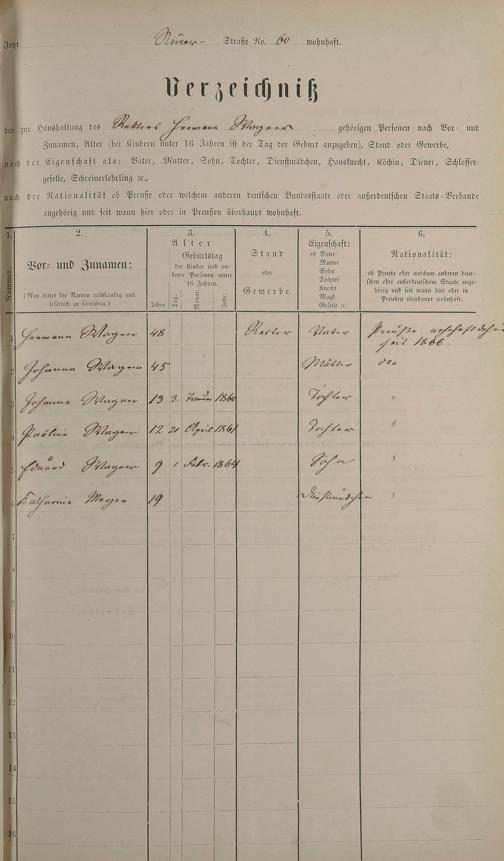 Jetzt Straße No. 60 wohnhaft.
Verzeichniß
der zur Haushaltung des Rektors Hermann Wagner gehörigen Personen nach Vor- und
Zunamen, Alter (bei Kindern unter 16 Jahren ist der Tag der Geburt anzugeben), Stand oder Gewerbe,
nach der Eigenschaft als: Vater, Mutter, Sohn, Tochter, Dienstmädchen, Hausknecht, Köchin, Diener, Schlosser-
geselle, Schreinerlehrling ec.,
nach der Nationalität ob Preuße oder welchem anderen deutschen Bundesstaate oder außerdeutschen Staats-Verbande
angehörig und seit wann hier oder in Preußen überhaupt wohnhaft.
1. Nummer.
2. Vor- und Zunamen:
(Man bittet die Namen vollständig und
leserlich zu schreiben.)
3. Alter
Jahre.
Geburtstag
der Kinder und an-
derer Personen unter
16 Jahren.
Tag. Monat. Jahr.
4. Stand
oder
Gewerbe.
5. Eigenschaft:
ob Vater
Mutter
Sohn
Tochter
Knecht
Magd
Geselle ec.
6. Nationalität:
ob Preuße oder welchem anderen deut-
schen oder außerdeutschen Staate ange-
hörig und seit wann hier oder in
Preußen überhaupt wohnhaft.
1 Hermann Wagner 48 Rector Vater Preuße, wohnhaft
seit 1866.
2 Johanna Wagner 45 Mutter dto
3 Johanna Wagner 13 3. Januar 1860 Tochter "
4 Pauline Wagner 12 21 April 1861 Tochter "
5 Eduard Wagner 9 1 Febr. 1864 Sohn "
6 Katharina Meyer 19 Dienstmädchen "
7
8
9
10
11
12
13
14
15
16